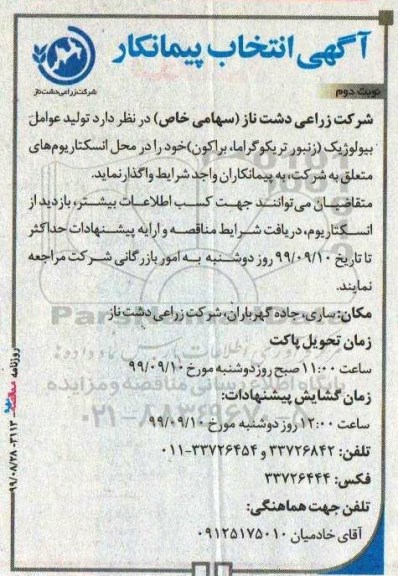 آگهی انتخاب پیمانکار
شرکت زراعی دشت ناز
نوبت دوم
شرکت زراعی دشت ناز (سهامی خاص) در نظر دارد تولید عوامل
بیولوژیک (زنبور تریکوگراما، براکون) خود را در محل انسکتاریوم‌های
متعلق به شرکت، به پیمانکاران واجد شرایط واگذار نماید.
متقاضیان می‌توانند جهت کسب اطلاعات بیشتر، بازدید از
انسکتاریوم، دریافت شرایط مناقصه و ارایه پیشنهادات حداکثر
تا تاریخ ۹۹/۰۹/۱۰ روز دوشنبه به امور بازرگانی شرکت مراجعه
نمایند.
مکان: ساری، جاده گهرباران، شرکت زراعی دشت ناز
زمان تحویل پاکت
ساعت ۱۱:۰۰ صبح روز دوشنبه مورخ ۹۹/۰۹/۱۰
زمان گشایش پیشنهادات:
ساعت ۱۲:۰۰ روز دوشنبه مورخ ۹۹/۰۹/۱۰
تلفن: ۳۳۷۲۶۸۴۲ و ۳۳۷۲۶۴۵۴-۰۱۱
فکس: ۳۳۷۲۶۴۴۴
تلفن جهت هماهنگی:
آقای خادمیان ۰۹۱۲۵۱۷۵۰۱۰
روزنامه
۳۱۱۳-۹۹/۰۸/۲۸
پایگاه اطلاع رسانی مناقصه و مزایده
۰۲۱-۸۸۳۴۹۶۷۰-۵